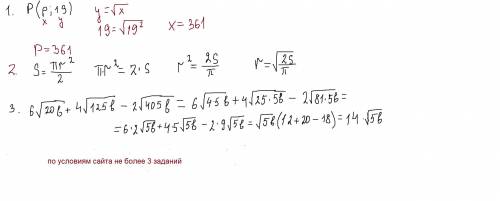 1. P(p; 19) y=√x x = 361
x y
19=√19²
P=361
2. S=πr²/2 πr²=2·S r²=2S/π r=√(2S/π)
3. 6√20b+4√125b-2√405b=6√4·5b+4√25·5b-2√81·5b=
=6·2√5b+4·5√5b-2·9√5b=√5b(12+20-18)=14·√5b
по условиям сайта не более 3 заданий